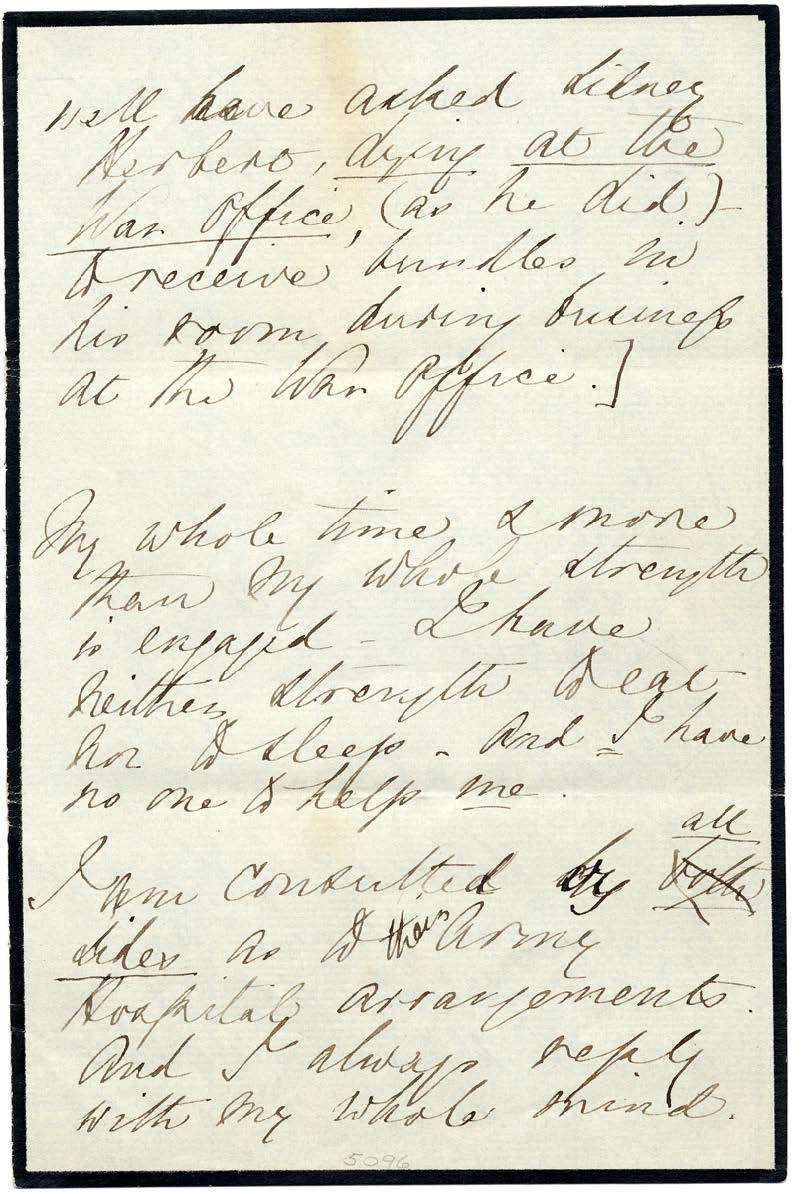 well have asked Sidney
Herbert, dying at the
War Office, (as he did)
to receive bundles in
his room during business
at the War Office.]
My whole time & more
than my whole strength
is engaged - I have
neither strength to eat
nor to sleep - And I have
no one to help me.
all
I am consulted by both
sides as to their Army
Hospital arrangements.
And I always reply
with my whole mind.
5096